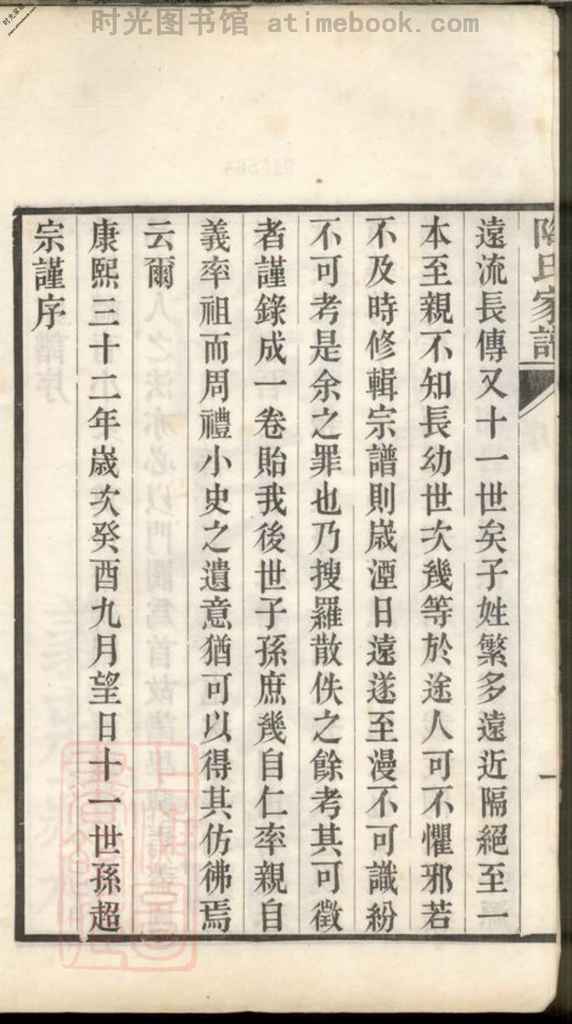 时光图书馆 atimebook.com
陶氏家譜
遠流長傳又十一世矣子姓繁多遠近隔絕至一
本至親不知長幼世次幾等於途人可不懼邪若
不及時修輯宗譜則歳湮日遠遂至漫不可識紛
不可考是余之罪也乃搜羅散佚之餘考其可徵
者謹錄成一卷貽我後世子孫庶幾自仁率親自
義率祖而周禮小史之遺意猶可以得其仿彿焉
云爾
康熙三十二年歳次癸酉九月望日十一世孫超
宗謹序